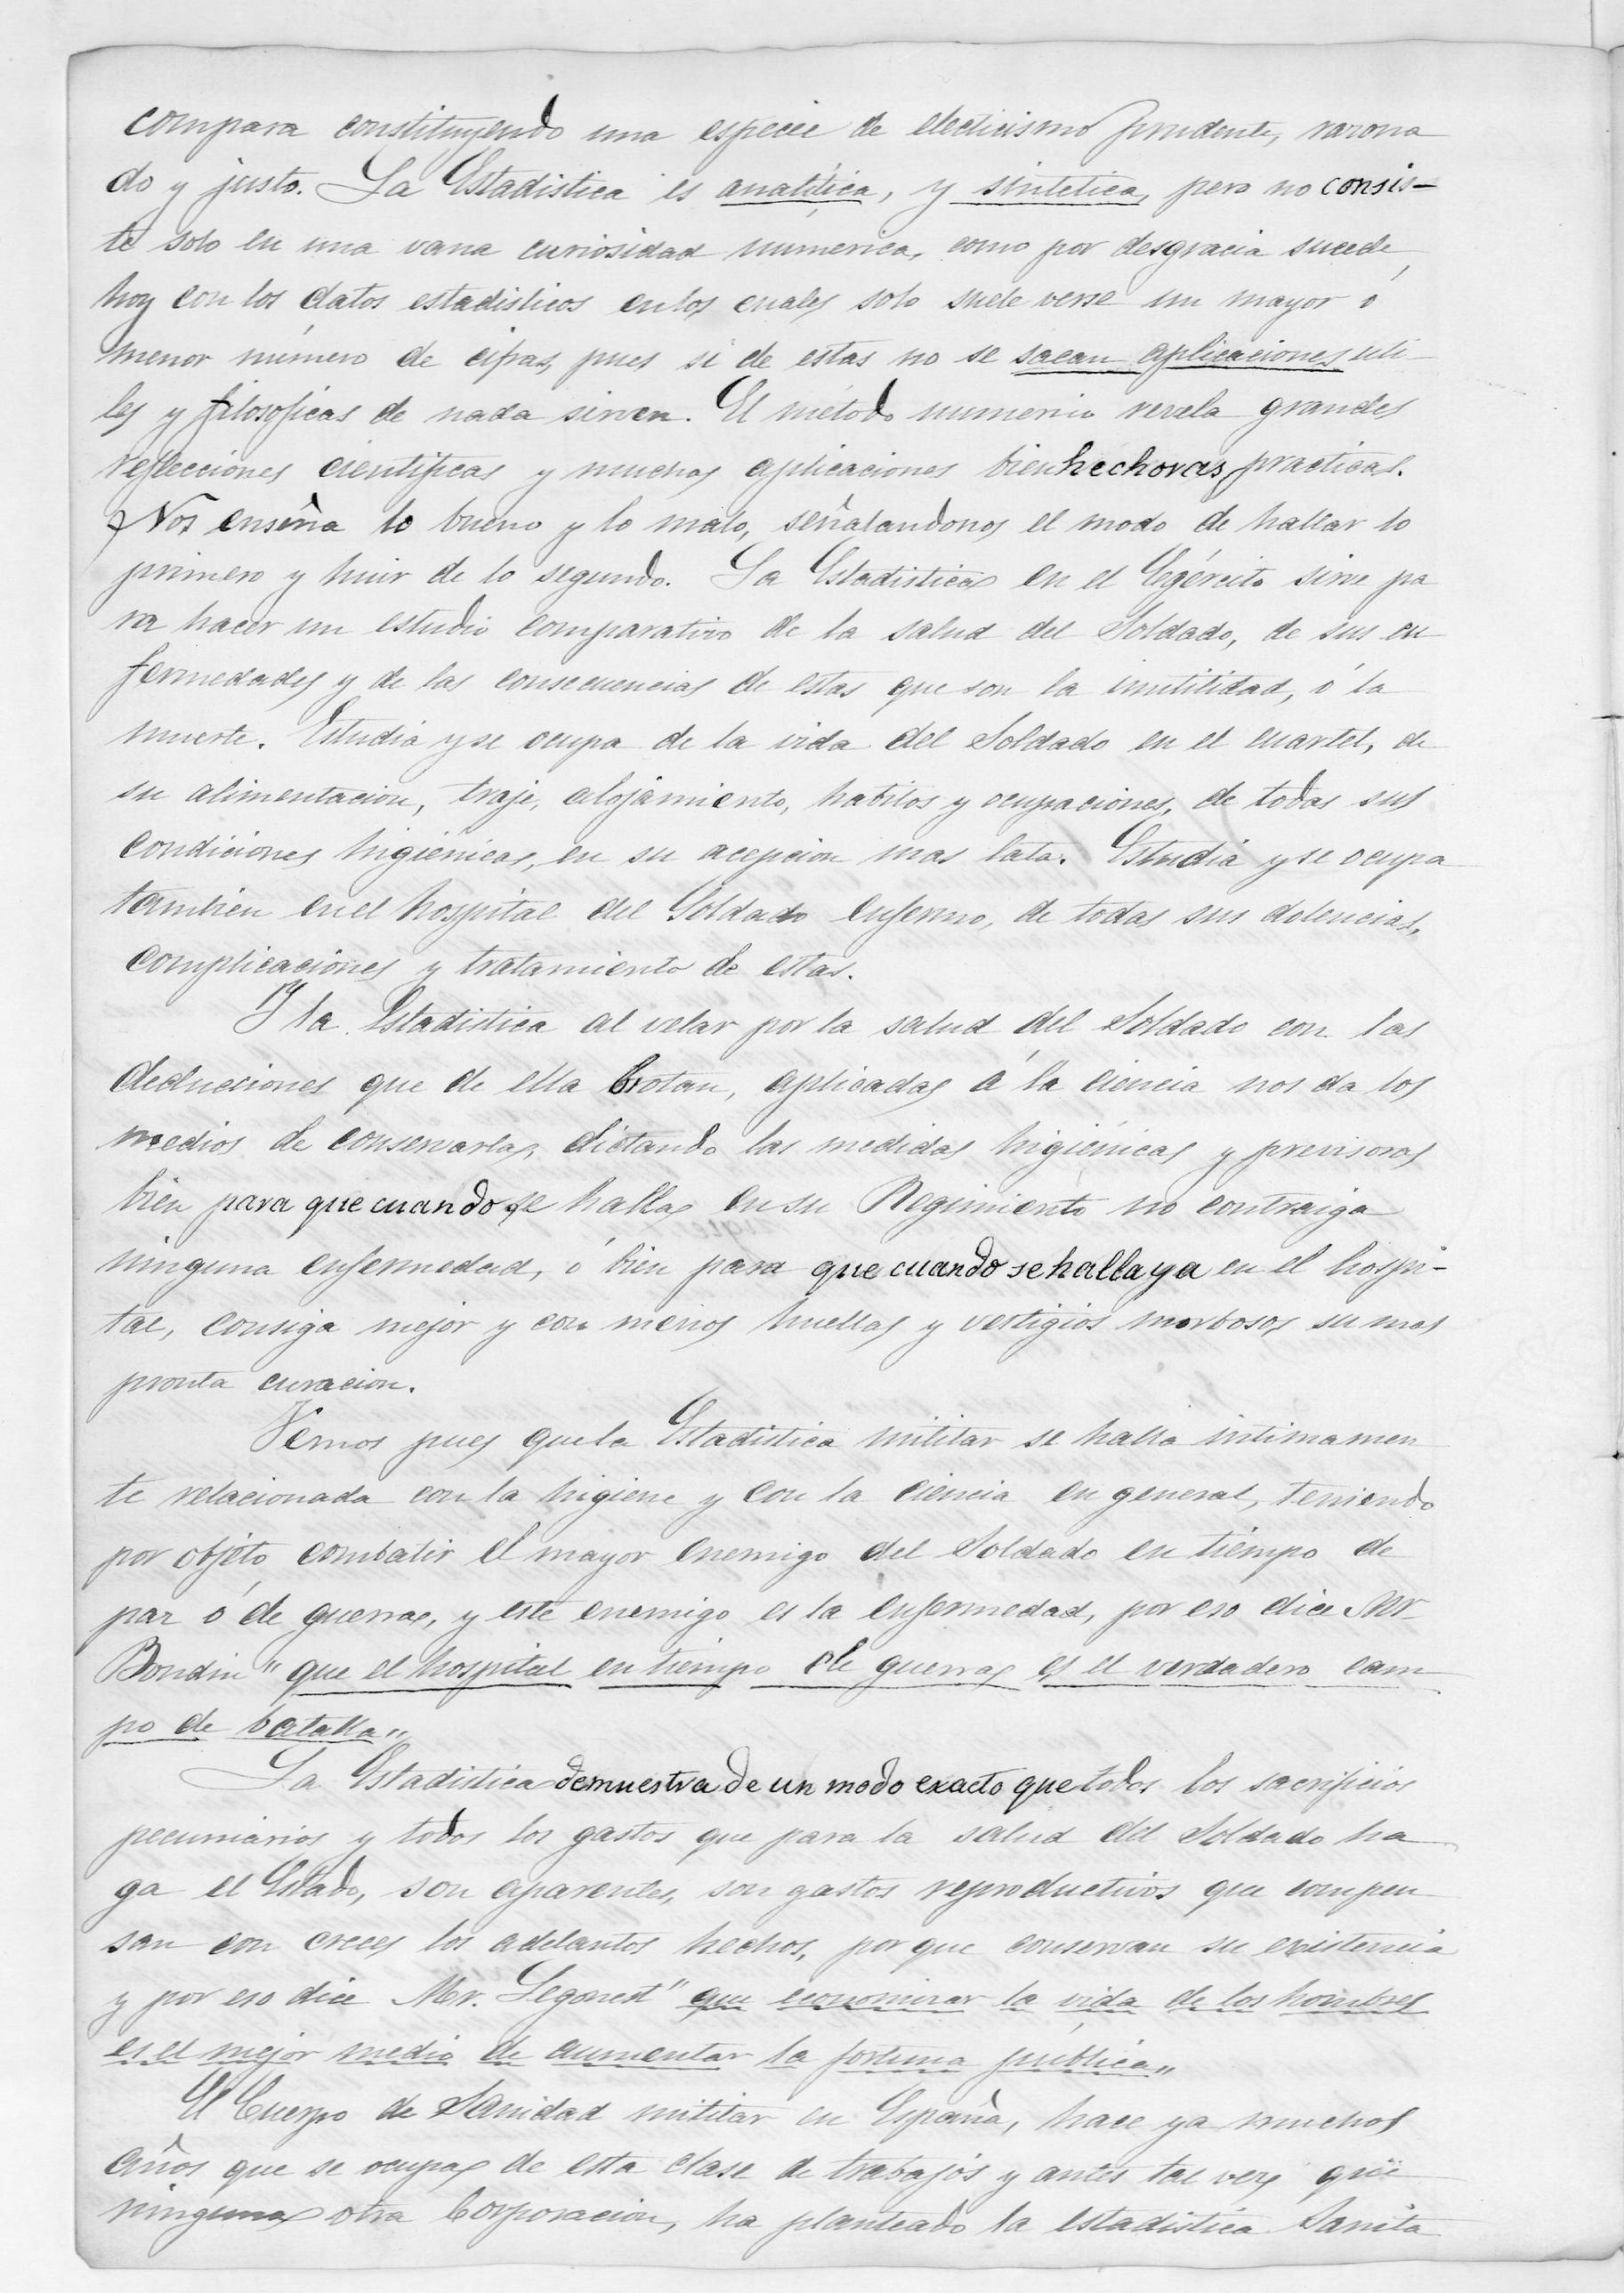 compara constituyendo una especie de electicismo prudente, razona
do y justo. La Estadistica es analítica, y sintetica, pero no consis-
te solo en una vana curiosidad númerica, como por desgracia sucede
hoy con los datos estadisticos en los cuales solo suele verse un mayor ó
menor número de cifras, pues si de estas no se sacan aplicaciones uti
les y filosoficas de nada sirven. El método numerico revela grandes
reflecciones cientificas y muchas aplicaciones bienhechoras, practicas.
Nos enseña lo bueno y lo malo, señalandonos el modo de hallar lo
primero y huir de lo segundo. La Estadistica en el Egército sirve pa
ra hacer un estudio comparativo de la salud del Soldado, de sus en
fermedades y de las consecuencias de estas que son la inutilidad, ó la
muerte. Estudia y se ocupa de la vida del Soldado en el cuartel, de
su alimentacion, traje, alojamiento, habitos y ocupaciones, de todas sus
condiciones higiénicas, en su acepcion mas lata. Estudia y se ocupa
tambien en el hospital del Soldado enfermo, de todas sus dolencias,
complicaciones y tratamiento de estas.
Y la Estadistica al velar por la salud del Soldado con las
deducciones que de ella brotan, aplicadas á la ciencia nos da los
medios de conservarla, dictando las medidas higiénicas y previsoras
bien para que cuando se halla en su Regimiento no contraiga
ninguna enfermedad, ó bien para que cuando se halla ya en el hospi-
tal, consiga mejor y con menos huellas y vestigios morbosos su mas
pronta curacion.
Vemos pues que la Estadistica militar se halla intimamen
te relacionada con la higiene y con la ciencia en general, teniendo
por objeto combatir el mayor enemigo del Soldado en tiempo de
paz ó de guerra, y este enemigo es la enfermedad, por eso dice Mr
Boudin "que el hospital en tiempo de guerra es el verdadero cam
po de batalla"
La Estadistica demuestra de un modo exacto que todos los sacrificios
pecuniarios y todos los gastos que para la salud del Soldado ha
ga el Estado, son aparentes, son gastos reproductivos que compen
san con creces los adelantos hechos, por que conservan su existencia
y por eso dice Mr. Legouest "que economizar la vida de los hombres
es el mejor medio de aumentar la fortuna pública"
El Cuerpo de Sanidad militar en España, hace ya muchos
años que se ocupa de esta clase de trabajos y antes tal vez que
ninguna otra Corporacion, ha planteado la estadistica Sanita